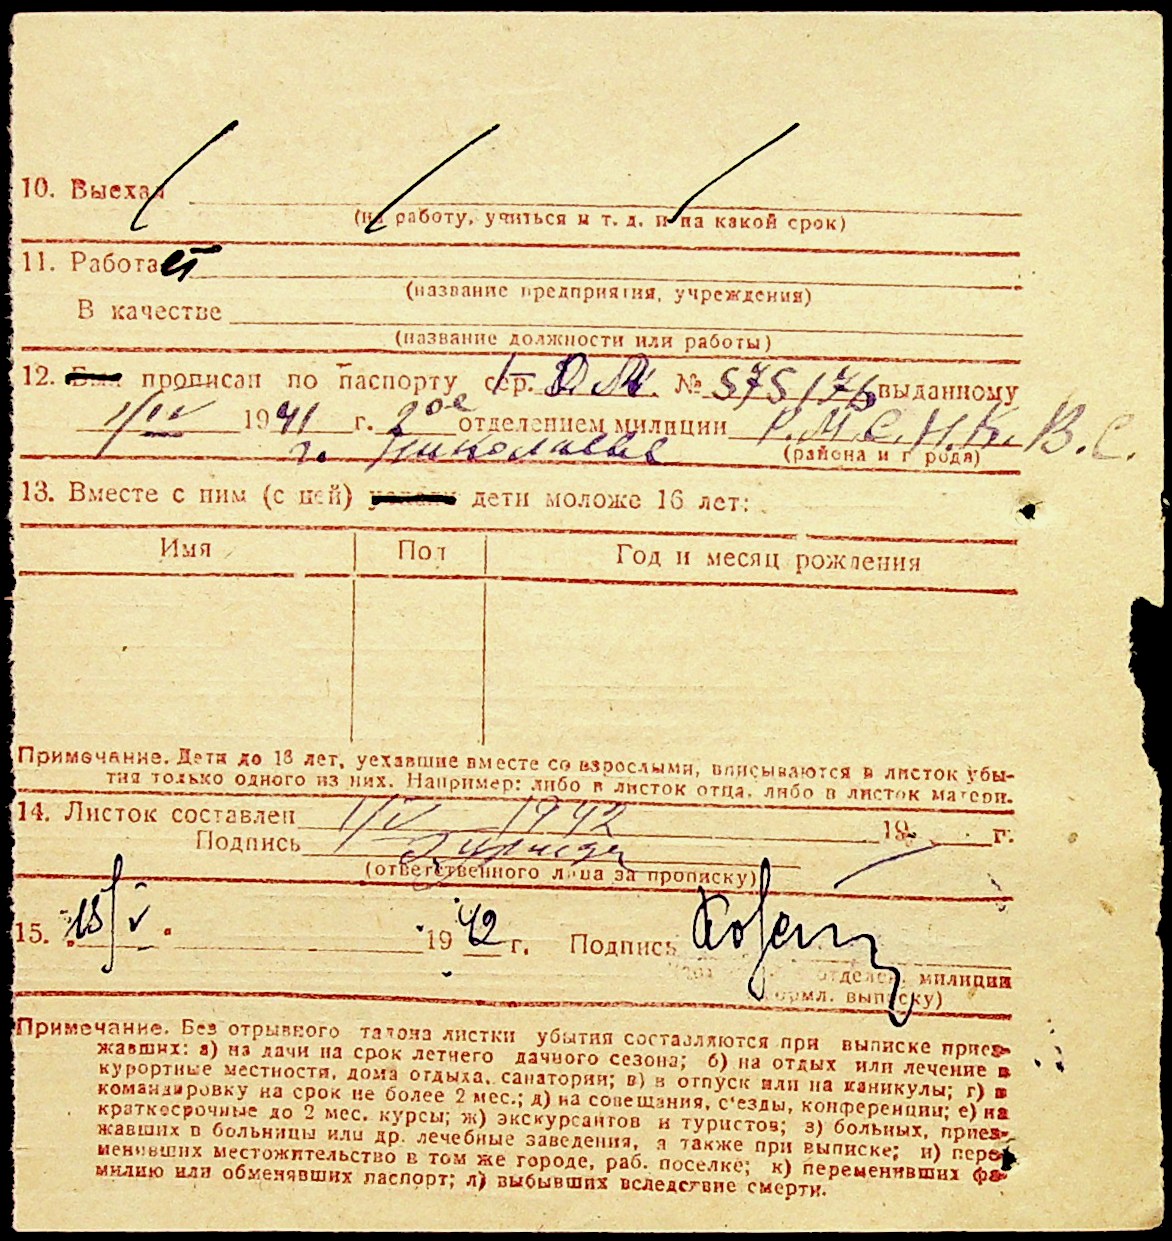 10. Выехал
(на работу, учиться и т. д. и на какой срок)
11. Работает
(название предприятия, учреждения)
В качестве
(название должности или работы)
12. Был прописан по паспорту сер. № 575176 выданному
1/IV 1941 г. 2ое отделением милиции Р.М.С.Н.К.В.С.
г. Николаеве (района и города)
13. Вместе с ним (с ней) дети моложе 16 лет:
Имя Пол Год и месяц рождения
Примечание. Дети до 18 лет, уехавшие вместе со взрослыми, вписываются в листок убы-
тия только одного из них. Например: либо в листок отца, либо в листок матери.
14. Листок составлен 1/V 1942 19 г.
Подпись
(ответственного лица за прописку)
15. 15/V 1942 г. Подпись
отделен. милиции
выписку)
Примечание. Без отрывного талона листки убытия составляются при выписке приез-
жавших: а) на дачи на срок летнего дачного сезона; б) на отдых или лечение в
курортные местности, дома отдыха, санатории; в) в отпуск или на каникулы; г) в
командировку на срок не более 2 мес.; д) на совещания, с'езды, конференции; е) на
краткосрочные до 2 мес. курсы; ж) экскурсантов и туристов; з) больных, приез-
жавших в больницы или др. лечебные заведения, а также при выписке; и) пере-
менивших местожительство в том же городе, раб. поселке; к) переменивших фа-
милию или обменявших паспорт; л) выбывших вследствие смерти.